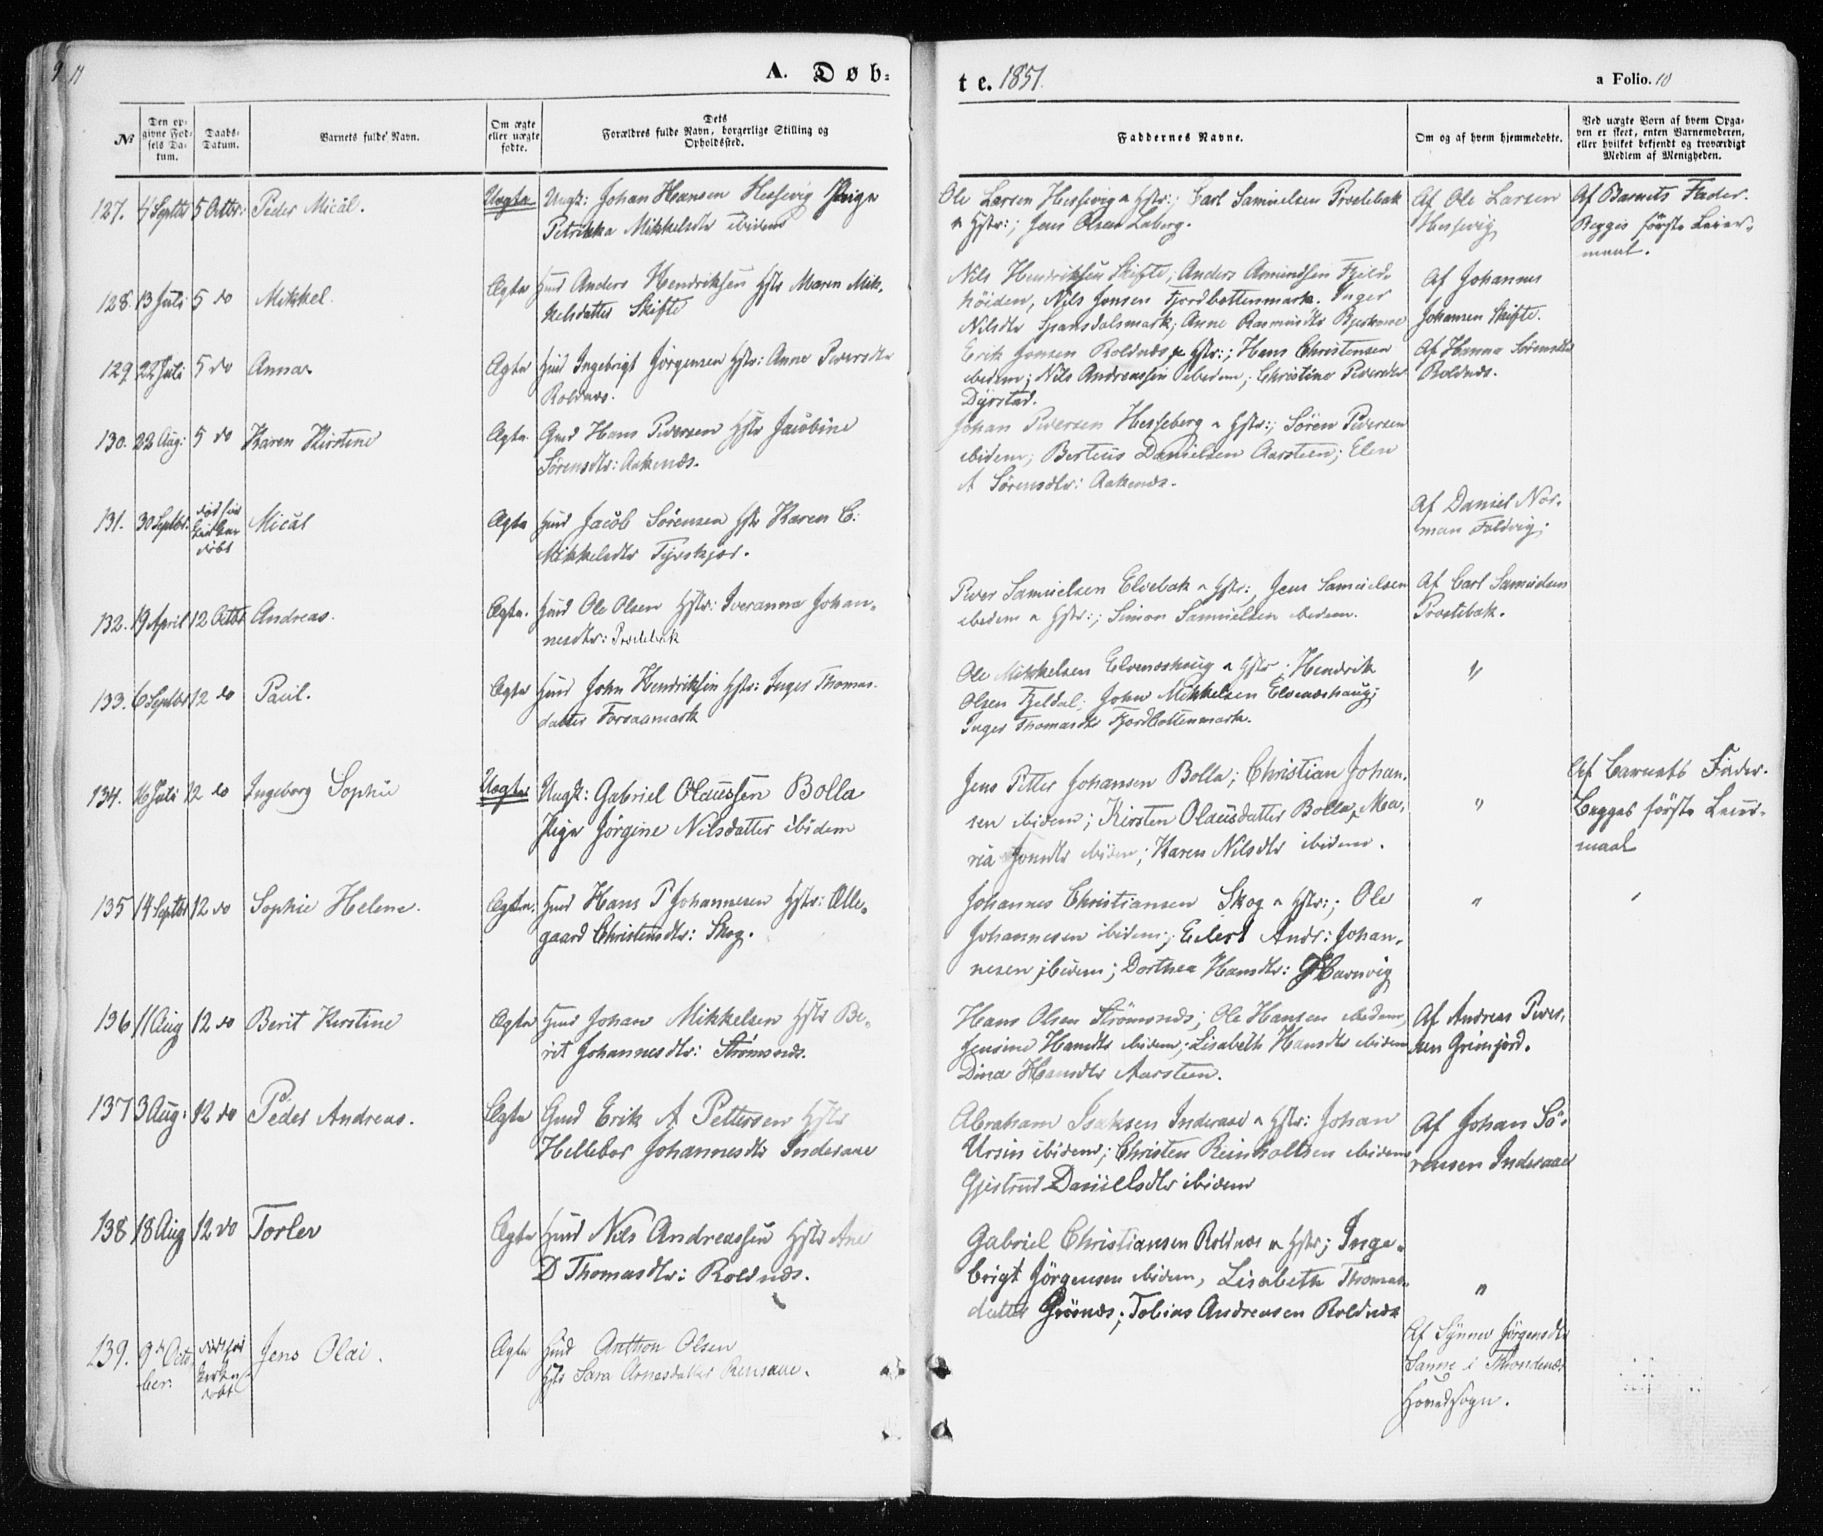 9 11
A. Døb-
te. 1851.
a Folio. 10
№
Den op-
givne Fød-
sels Da-
tum.
Daabs-
Datum.
Barnets fulde Navn.
Om ægte
eller uægte
fødte.
Dets
Forældres fulde Navn, borgerlige Stilling og
Opholdssted.
Faddernes Navne.
Om og af hvem hjemmedøbte.
Ved uægte Børn af hvem Opga-
ven er skeet, enten Barnemoderen,
eller hvilket bekjendt og troværdigt
Medlem af Menigheden.
127. 4 Septbr 5 Octbr: Peder Mical. Uægte Ungk: Johan Hansen Hessevig Pige
Petrikka Mikkelsdtr ibidem
Ole Larsen Hessevig & Hstr:; Carl Samuelsen Provtebak
& Hstr:; Jens Olsen Laberg.
Af Ole Larsen
Hessevig
Af Barnets Fader.
Begges første Leier-
maal.
128. 13 Juli 5 do Mikkel. Ægte Huusmd Anders Hendriksen Hstr Maren Mik-
kelsdatter Skifte
Nils Hendriksen Skifte; Anders Amundsen Fjeld-
höiden, Nils Jonsen Fjordbottenmark. Inger
Nilsdtr Spansdalsmark; Anne Rasmusdtr
Af Johannes
Johansen Skifte.
129 22 Juli 5 do Anna Ægte Huusmd Ingebrigt Jørgensen Hstr: Anne Peersdtr
Roldnæs.
Erik Jonsen Roldnæs & Hstr:; Hans Christensen
ibidem; Nils Andreassen ibidem; Christine Pedersdtr
Dyrstad.
Af Hanna Sørensdtr
Roldnæs.
130. 22 Aug: 5 do Karen Kirstine Ægte Gmd Hans Pedersen Hstr Jacobine
Sørensdtr: Aakenæs.
Johan Pedersen Hesseberg & Hstr:; Søren Pedersen
ibidem; Bertius Danielsen Aarsteen; Elen
A Sørensdtr: Aakenæs.
131. 30 Septbr: død før
døbt Mical Ægte Huusmd Jacob Sørensen Hstr Karen C:
Mikkelsdtr
Af Daniel Nor-
man Foldvig.
132. 19 April 12 Octbr Andreas. Ægte. Huusmd Ole Olsen Hstr: Iveranna Johan-
nesdtr: Provtebak
Peder Samuelsen Elvebak & Hstr:, Jens Samuelsen
ibidem & Hstr:; Simon Samuelsen ibidem.
Af Carl Samuelsen
Provtebak.
133. 6 Septbr 12 do Paul. Ægte Huusmd John Hendriksen Hstr: Inger Thomas-
datter Forsaamark
Ole Mikkelsen Elvenæshaug & Hstr; Hendrik
Olsen Fjeldal; John Mikkelsen Elvenæshaug;
Inger Thomasdtr Fjordbottenmark.
"
134. 16 Juli 12 do Ingeborg Sophie Uægte Ungk: Gabriel Olaussen Bolla
Pige Jørgine Nilsdatter ibidem
Jens Petter Johansen Bolla; Christian Johan-
sen ibidem; Kirsten Olausdatter Bolla, Ma-
ria Jonsdtr ibidem; Karen Nilsdtr ibidem.
"
Af Barnets Fader.
Begges første Leier-
maal
135 14 Septbr 12 do Sophie Helene. Ægte. Huusmd Hans P Johannesen Hstr: Olle-
gaard Christensdtr: Skog.
Johannes Christiansen Skog & Hstr:; Ole
Johannesen ibidem; Eilert Andr: Johan-
nesen ibidem; Dorthea Hansdtr: Havnvig
"
136 11 Aug 12 do Berit Kirstine Ægte Huusmd Johan Mikkelsen Hstr Be-
rit Johannesdtr: Strømsnæs.
Hans Olsen Strømsnæs; Ole Hansen ibidem,
Jensine Hansdtr ibidem; Lisabeth Hansdtr ibidem
Dina Hansdtr Aarsteen.
Af Andreas Peder-
sen Grimjord.
137 3 Aug: 12 do Peder Andreas. Ægte Gmd Erik A Pettersen Hstr
Hellebor Johannesdtr Inderaae
Abraham Isaksen Inderaae & Hstr: Johan
Ursin ibidem; Christen Reinholtsen ibidem
Gjertrud Daniilsdtr ibidem
Af Johan Sö-
rensen Inderaae
138 18 Aug 12 do Torlev Ægte Huusmd Nils Andreassen Hstr Ane
D Thomasdtr: Roldnæs.
Gabriel Christiansen Roldnæs & Hstr; Inge-
brigt Jörgensen ibidem, Lisabeth Thomas-
datter Grønæs; Tobias Andreasen Roldnæs
"
139. 9de Octo-
ber. død før
døbt Jens Olai. Ægte Huusmd Anthon Olsen
Hstr Sara Arnesdatter Rensaae.
Af Synnev Jørgensdtr
Sanne i Throndenæs
Hovedsogn.